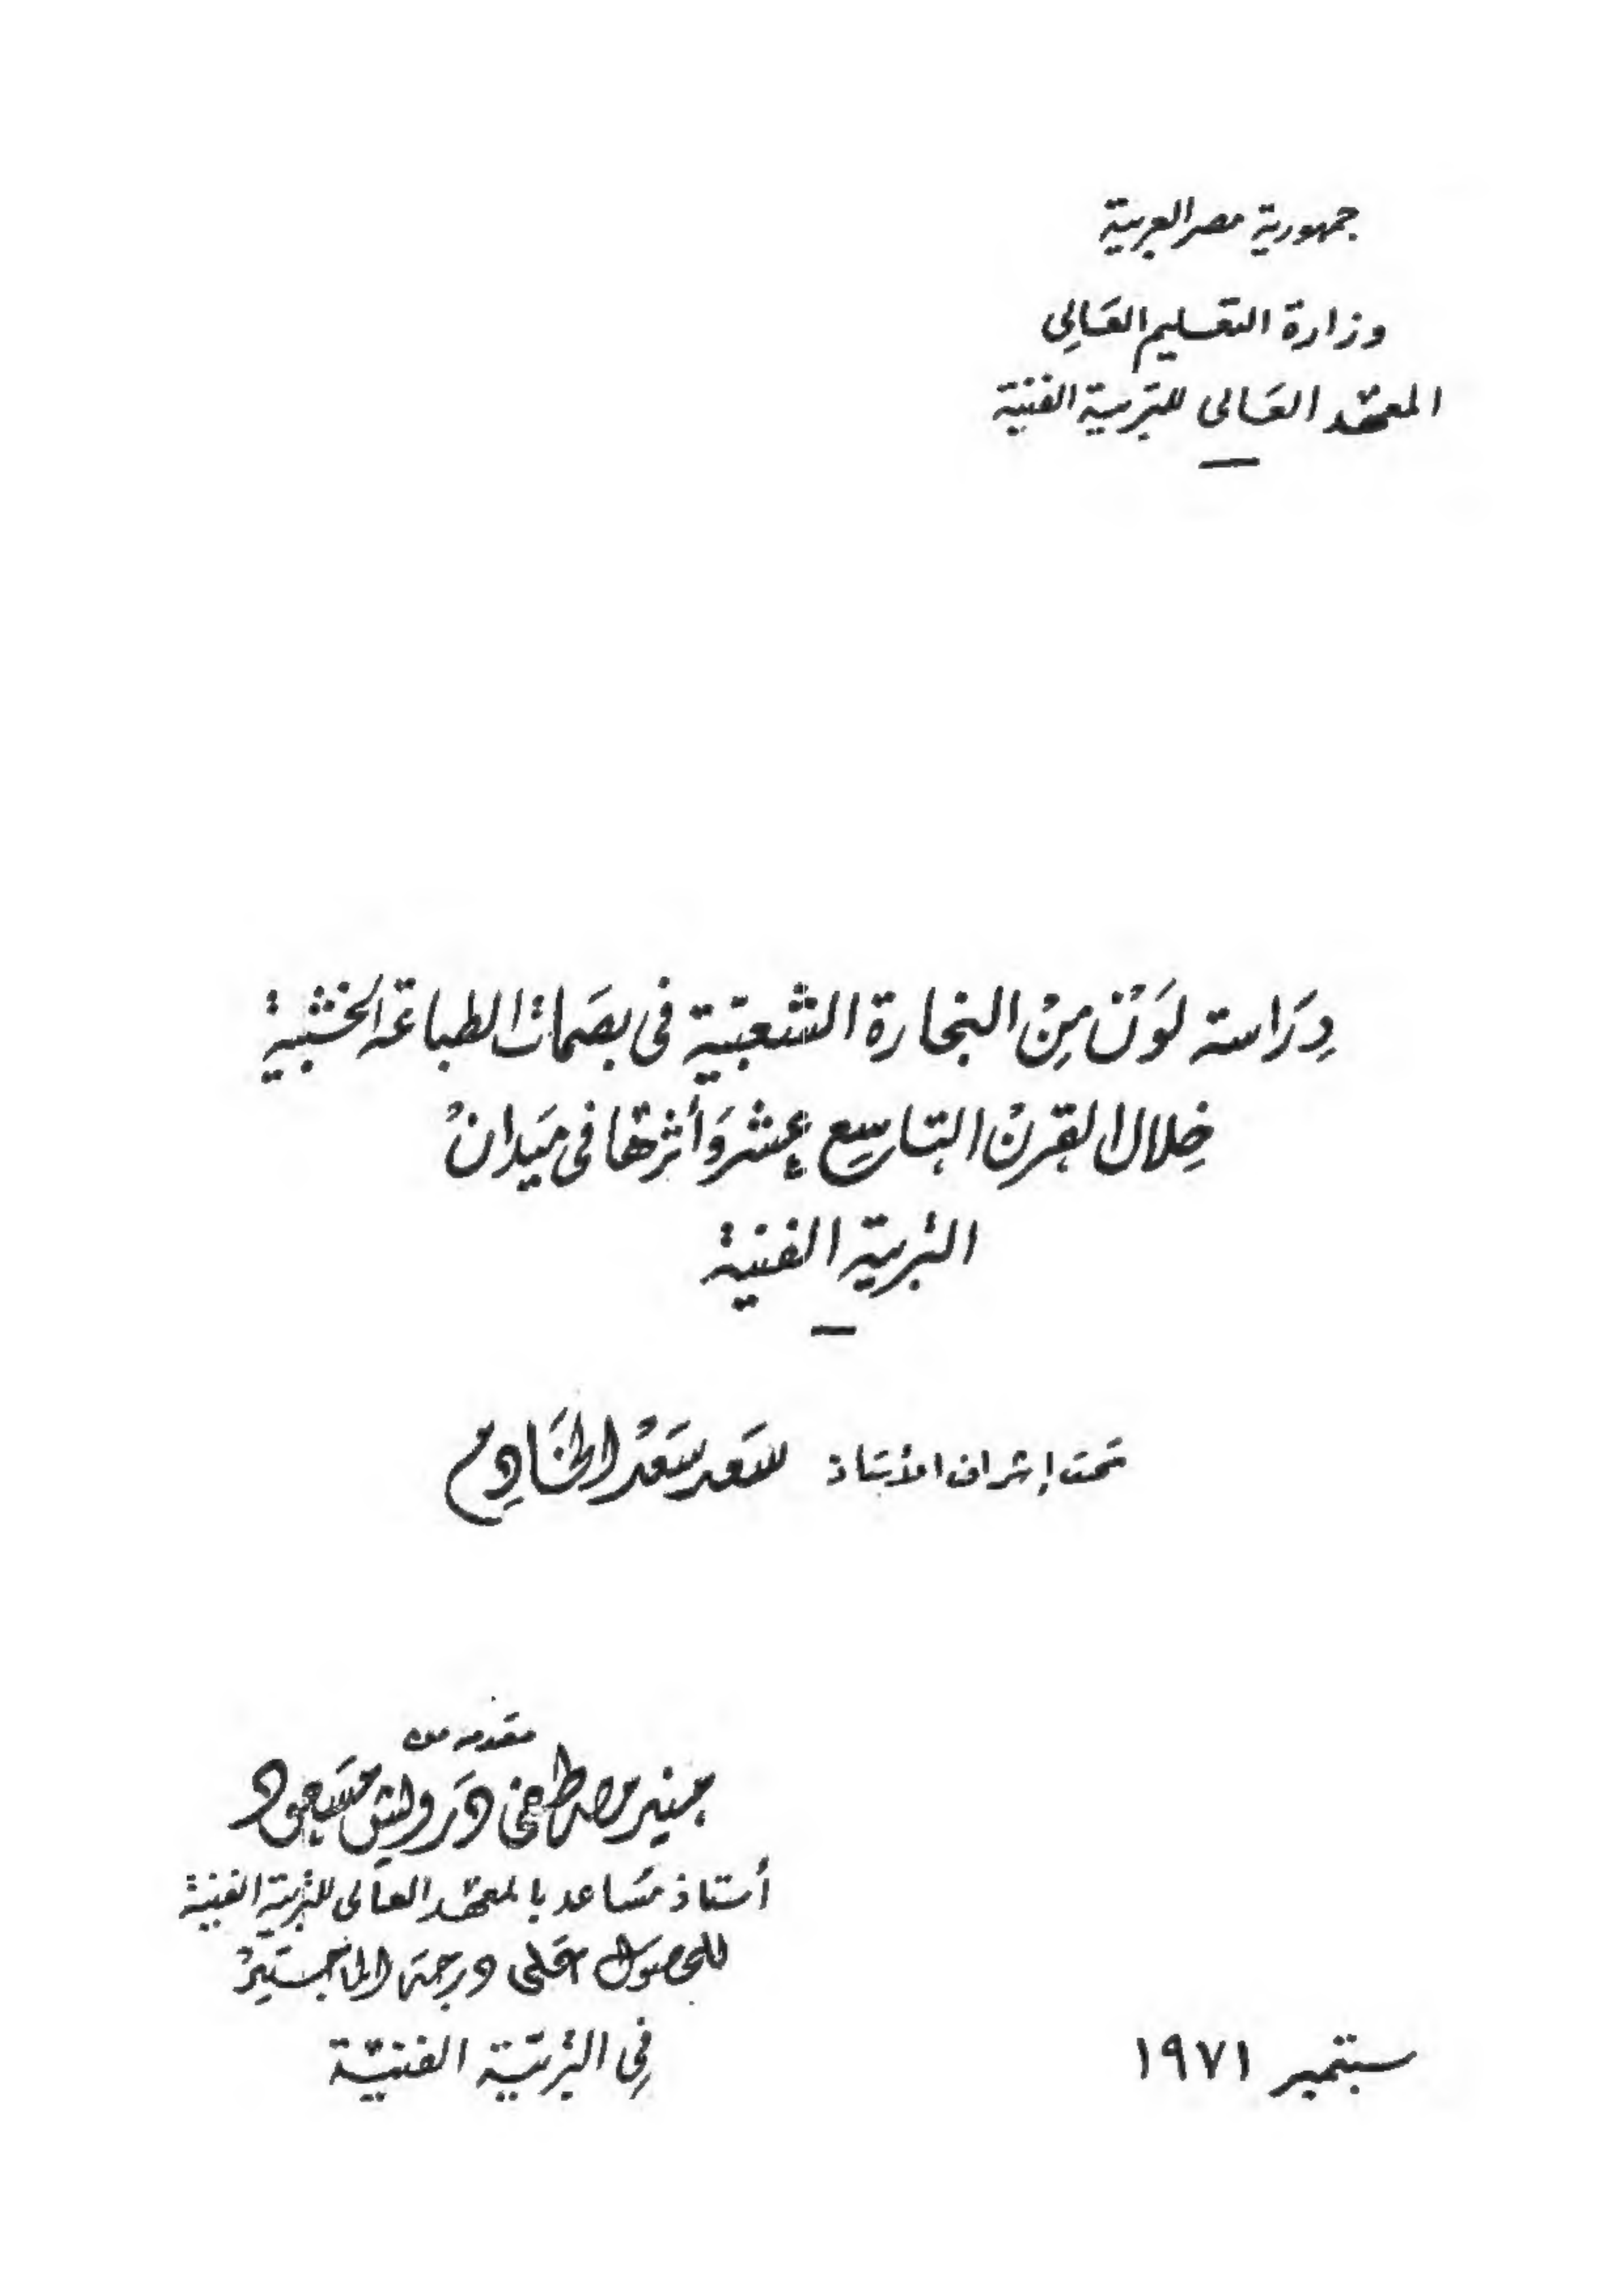 جمهورية مصر العربية
وزارة التعليم العالى
المعهد العالى للتربية الفنية
دراسة لون من النجارة الشعبية فى بصمات الطباعة الخشبية
خلال القرن التاسع عشر وأثرها فى ميدان
التربية الفنية
تحت إشراف الأستاذ سعد سعد الخادم
مقدمه من
منير مصطفى درويش مسعود
أستاذ مساعد بالمعهد العالى للتربية الفنية
للحصول على درجة الماجستير
فى التربية الفنية
سبتمبر ١٩٧١